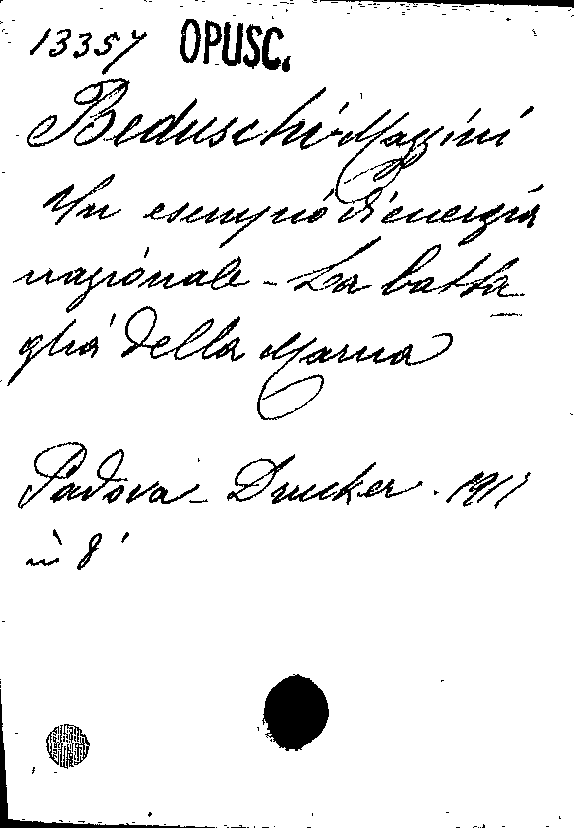 13357 OPUSC.
Beduschi Mazzini
Un esempio di energia
nazionale - La batta
glia della Marna
Padova - Drucker - 191
in 8°